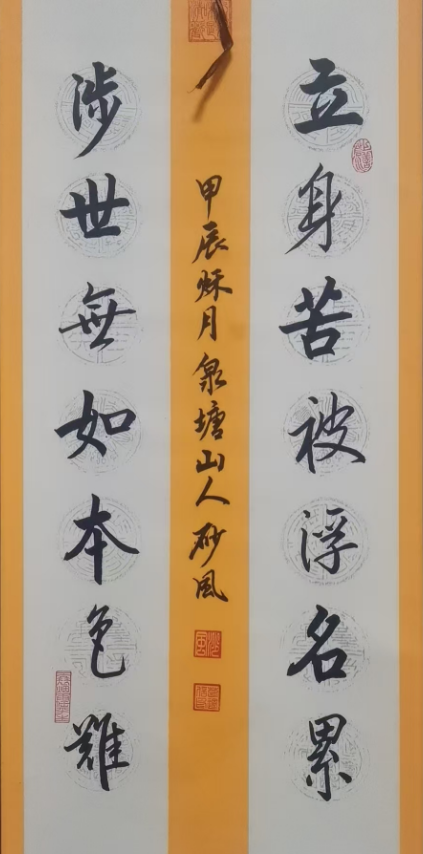 立身苦被浮名累
涉世無如本色難
甲辰烁月泉塘山人砂風